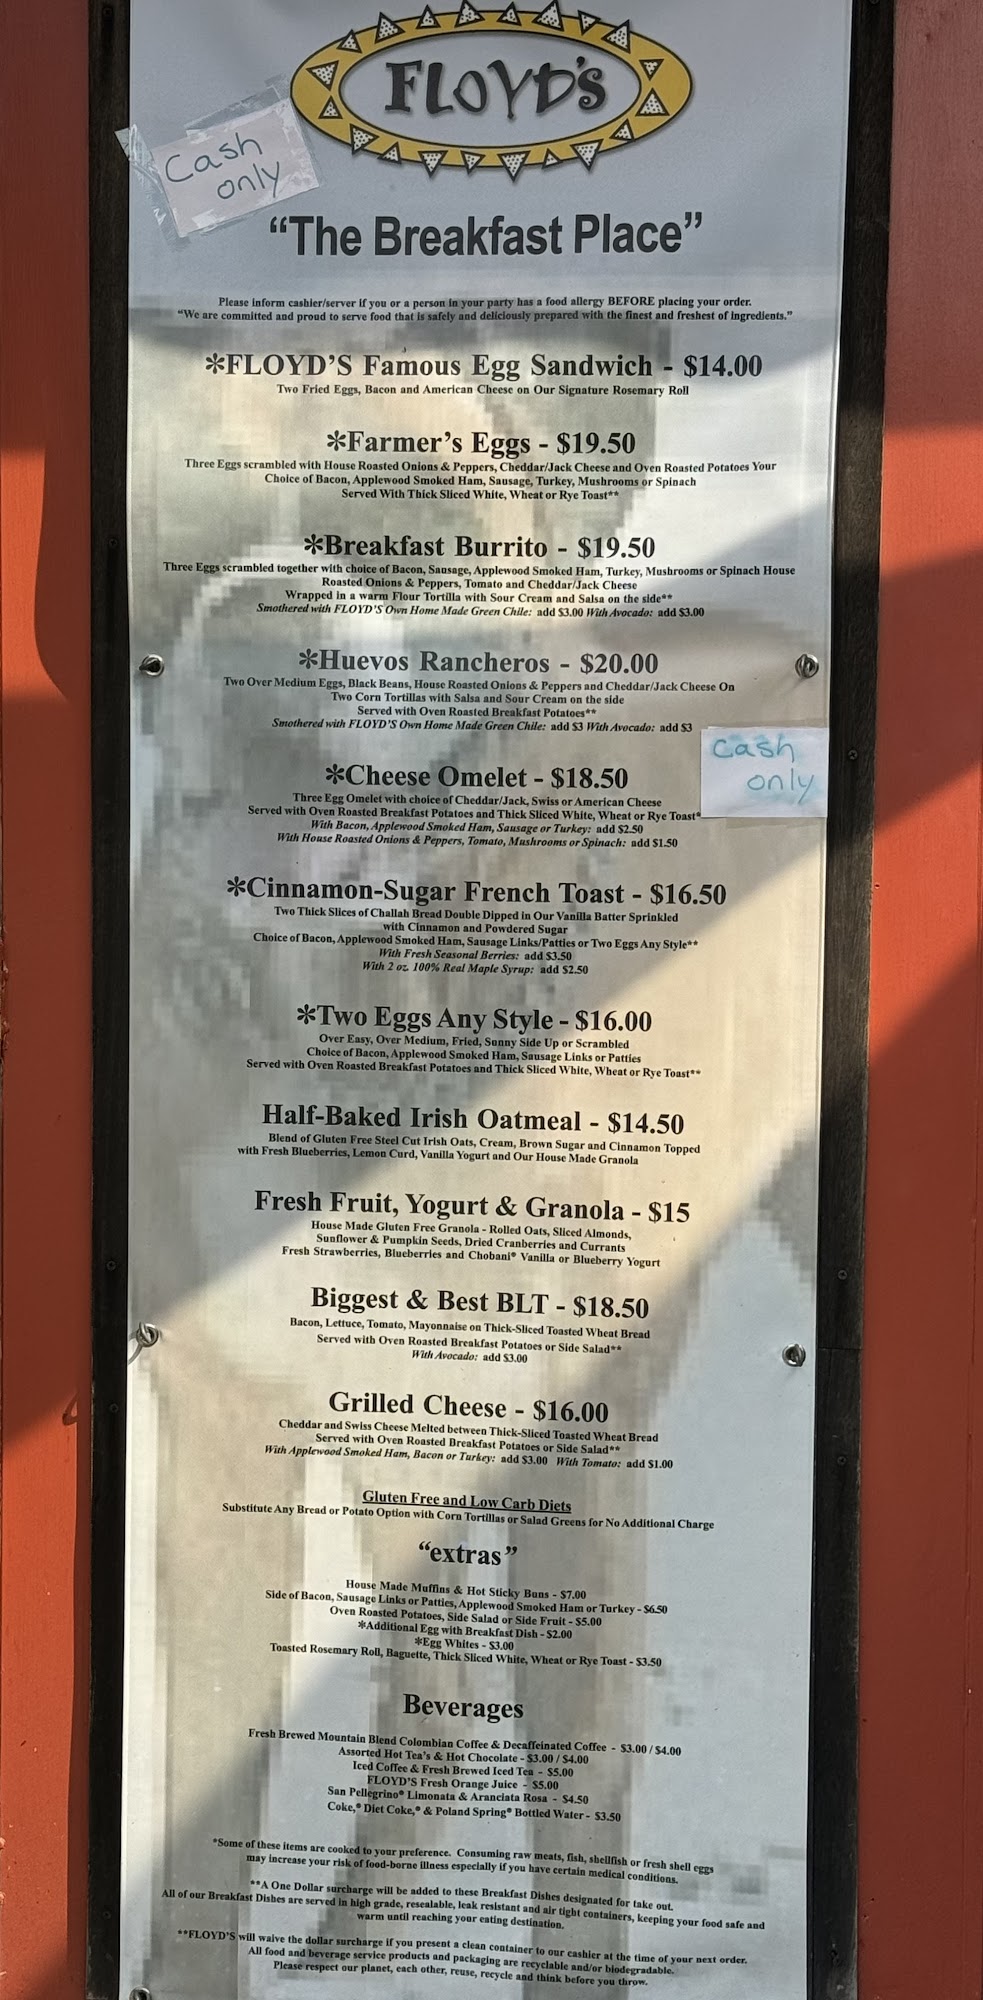 FLOYD'S
Cash
only
"The Breakfast Place"
Please inform cashier/server if you or a person in your party has a food allergy BEFORE placing your order.
"We are committed and proud to serve food that is safely and deliciously prepared with the finest and freshest of ingredients."
*FLOYD'S Famous Egg Sandwich - $14.00
Two Fried Eggs, Bacon and American Cheese on Our Signature Rosemary Roll
*Farmer's Eggs - $19.50
Three Eggs scrambled with House Roasted Onions & Peppers, Cheddar/Jack Cheese and Oven Roasted Potatoes Your
Choice of Bacon, Applewood Smoked Ham, Sausage, Turkey, Mushrooms or Spinach
Served With Thick Sliced White, Wheat or Rye Toast**
*Breakfast Burrito - $19.50
Three Eggs scrambled together with choice of Bacon, Sausage, Applewood Smoked Ham, Turkey, Mushrooms or Spinach House
Roasted Onions & Peppers, Tomato and Cheddar/Jack Cheese
Wrapped in a warm Flour Tortilla with Sour Cream and Salsa on the side**
Smothered with FLOYD'S Own Home Made Green Chile: add $3.00 With Avocado: add $3.00
*Huevos Rancheros - $20.00
Two Over Medium Eggs, Black Beans, House Roasted Onions & Peppers and Cheddar/Jack Cheese On
Two Corn Tortillas with Salsa and Sour Cream on the side
Served with Oven Roasted Breakfast Potatoes**
Smothered with FLOYD'S Own Home Made Green Chile: add $3 With Avocado: add $3
Cash
only
*Cheese Omelet - $18.50
Three Egg Omelet with choice of Cheddar/Jack, Swiss or American Cheese
Served with Oven Roasted Breakfast Potatoes and Thick Sliced White, Wheat or Rye Toast*
With Bacon, Applewood Smoked Ham, Sausage or Turkey: add $2.50
With House Roasted Onions & Peppers, Tomato, Mushrooms or Spinach: add $1.50
*Cinnamon-Sugar French Toast - $16.50
Two Thick Slices of Challah Bread Double Dipped in Our Vanilla Batter Sprinkled
with Cinnamon and Powdered Sugar
Choice of Bacon, Applewood Smoked Ham, Sausage Links/Patties or Two Eggs Any Style**
With Fresh Seasonal Berries: add $3.50
With 2 oz. 100% Real Maple Syrup: add $2.50
*Two Eggs Any Style - $16.00
Over Easy, Over Medium, Fried, Sunny Side Up or Scrambled
Choice of Bacon, Applewood Smoked Ham, Sausage Links or Patties
Served with Oven Roasted Breakfast Potatoes and Thick Sliced White, Wheat or Rye Toast**
Half-Baked Irish Oatmeal - $14.50
Blend of Gluten Free Steel Cut Irish Oats, Cream, Brown Sugar and Cinnamon Topped
with Fresh Blueberries, Lemon Curd, Vanilla Yogurt and Our House Made Granola
Fresh Fruit, Yogurt & Granola - $15
House Made Gluten Free Granola - Rolled Oats, Sliced Almonds,
Sunflower & Pumpkin Seeds, Dried Cranberries and Currants
Fresh Strawberries, Blueberries and Chobani® Vanilla or Blueberry Yogurt
Biggest & Best BLT - $18.50
Bacon, Lettuce, Tomato, Mayonnaise on Thick-Sliced Toasted Wheat Bread
Served with Oven Roasted Breakfast Potatoes or Side Salad**
With Avocado: add $3.00
Grilled Cheese - $16.00
Cheddar and Swiss Cheese Melted between Thick-Sliced Toasted Wheat Bread
Served with Oven Roasted Breakfast Potatoes or Side Salad**
With Applewood Smoked Ham, Bacon or Turkey: add $3.00 With Tomato: add $1.00
Gluten Free and Low Carb Diets
Substitute Any Bread or Potato Option with Corn Tortillas or Salad Greens for No Additional Charge
"extras"
House Made Muffins & Hot Sticky Buns - $7.00
Side of Bacon, Sausage Links or Patties, Applewood Smoked Ham or Turkey - $6.50
Oven Roasted Potatoes, Side Salad or Side Fruit - $5.00
*Additional Egg with Breakfast Dish - $2.00
*Egg Whites - $3.00
Toasted Rosemary Roll, Baguette, Thick Sliced White, Wheat or Rye Toast - $3.50
Beverages
Fresh Brewed Mountain Blend Colombian Coffee & Decaffeinated Coffee - $3.00 / $4.00
Assorted Hot Tea's & Hot Chocolate - $3.00 / $4.00
Iced Coffee & Fresh Brewed Iced Tea - $5.00
FLOYD'S Fresh Orange Juice - $5.00
San Pellegrino® Limonata & Aranciata Rosa - $4.50
Coke,® Diet Coke,® & Poland Spring® Bottled Water - $3.50
*Some of these items are cooked to your preference. Consuming raw meats, fish, shellfish or fresh shell eggs
may increase your risk of food-borne illness especially if you have certain medical conditions.
**A One Dollar surcharge will be added to these Breakfast Dishes designated for take out.
All of our Breakfast Dishes are served in high grade, resealable, leak resistant and air tight containers, keeping your food safe and
warm until reaching your eating destination.
**FLOYD'S will waive the dollar surcharge if you present a clean container to our cashier at the time of your next order.
All food and beverage service products and packaging are recyclable and/or biodegradable.
Please respect our planet, each other, reuse, recycle and think before you throw.